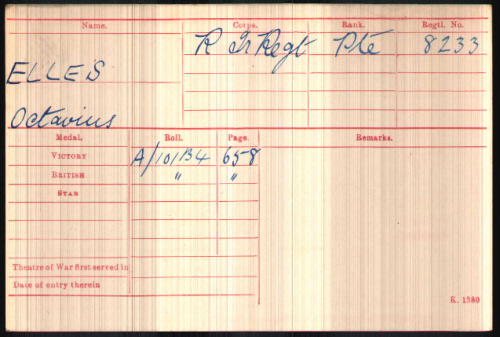 Name. Corps. Rank. Regtl. No.
R Ir Regt Pte 8233
ELLES
Octavius
Medal. Roll. Page. Remarks.
VICTORY A/101B4 658
BRITISH " "
STAR
Theatre of War first served in
Date of entry therein
K. 1380